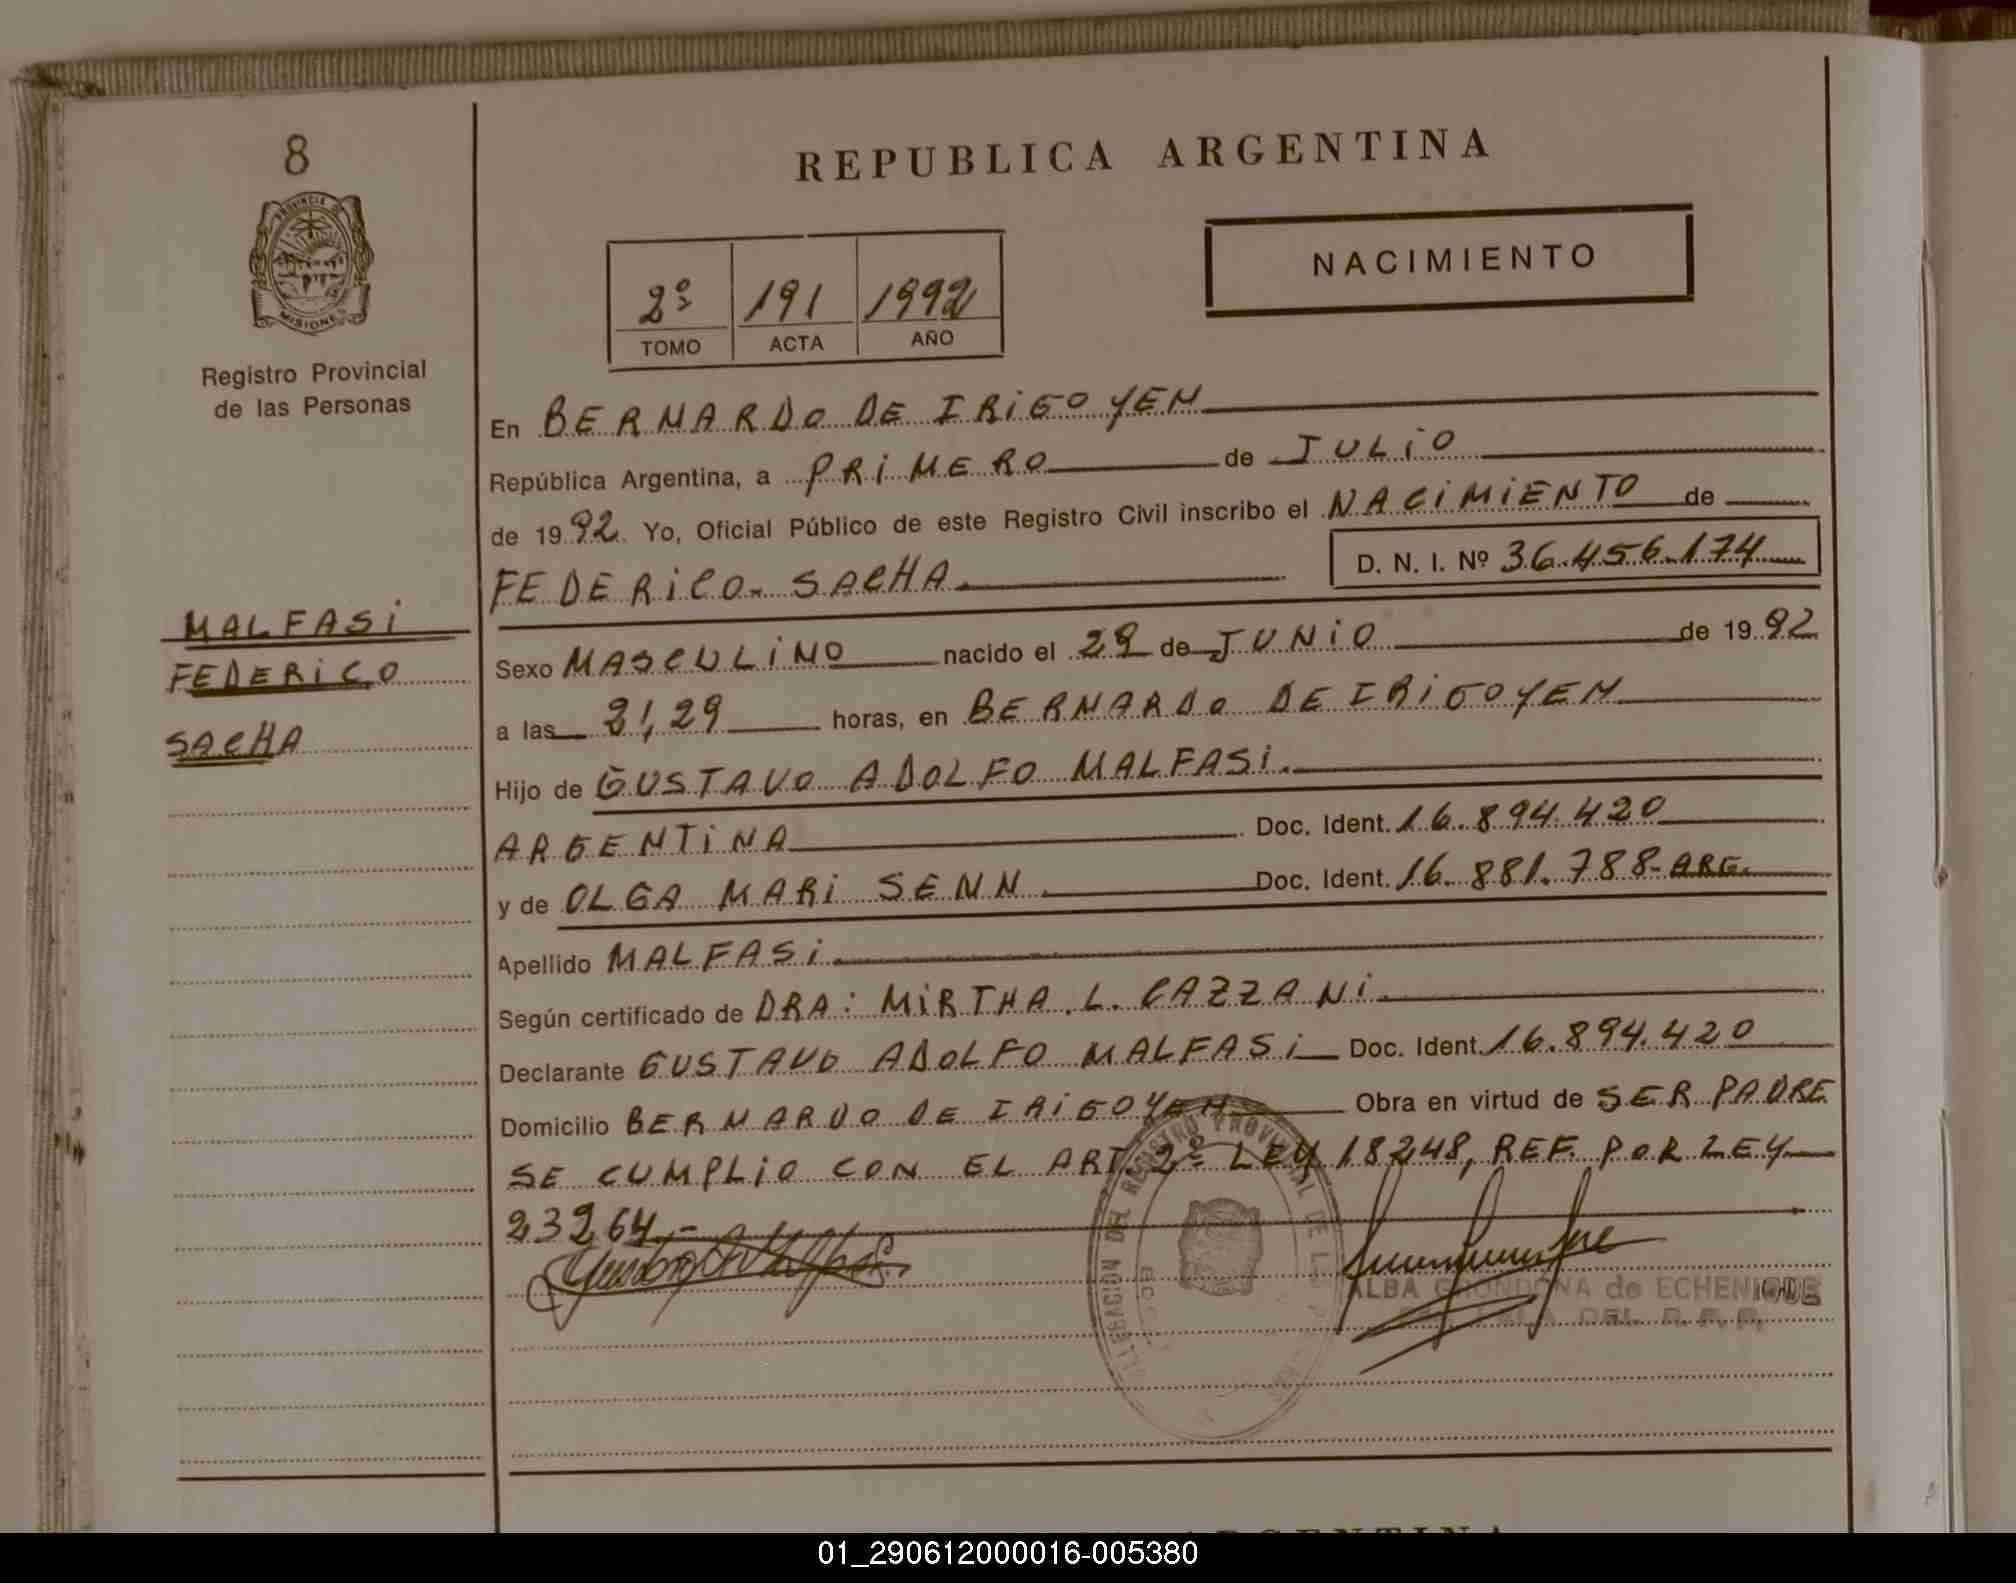 8
PROVINCIA DE
MISIONES
Registro Provincial
de las Personas
MALFASI
FEDERICO
SACHA
REPUBLICA ARGENTINA
NACIMIENTO
2º 191 1992
TOMO ACTA AÑO
En BERNARDO DE IRIGOYEN
República Argentina, a PRIMERO de JULIO
de 1992. Yo, Oficial Público de este Registro Civil inscribo el NACIMIENTO de
FEDERICO SACHA D. N. I. Nº 36.456.174
Sexo MASCULINO nacido el 29 de JUNIO de 1992
a las 21,29 horas, en BERNARDO DE IRIGOYEN
Hijo de GUSTAVO ADOLFO MALFASI.
ARGENTINA Doc. Ident. 16.894.420
y de OLGA MARI SENN Doc. Ident. 16.881.788-ARG.
Apellido MALFASI
Según certificado de DRA: MIRTHA.L. CAZZANI
Declarante GUSTAVO ADOLFO MALFASI Doc. Ident. 16.894.420
Domicilio BERNARDO DE IRIGOYEN Obra en virtud de SER PADRE
SE CUMPLIO CON EL ART. 2º LEY 18248, REF. POR LEY
23264.-
DELEGACION DEL REGISTRO PROVINCIAL DE LAS
ALBA GRONDONA de ECHENIQUE
DEL R. P. P.
ARGENTINA
01_290612000016-005380